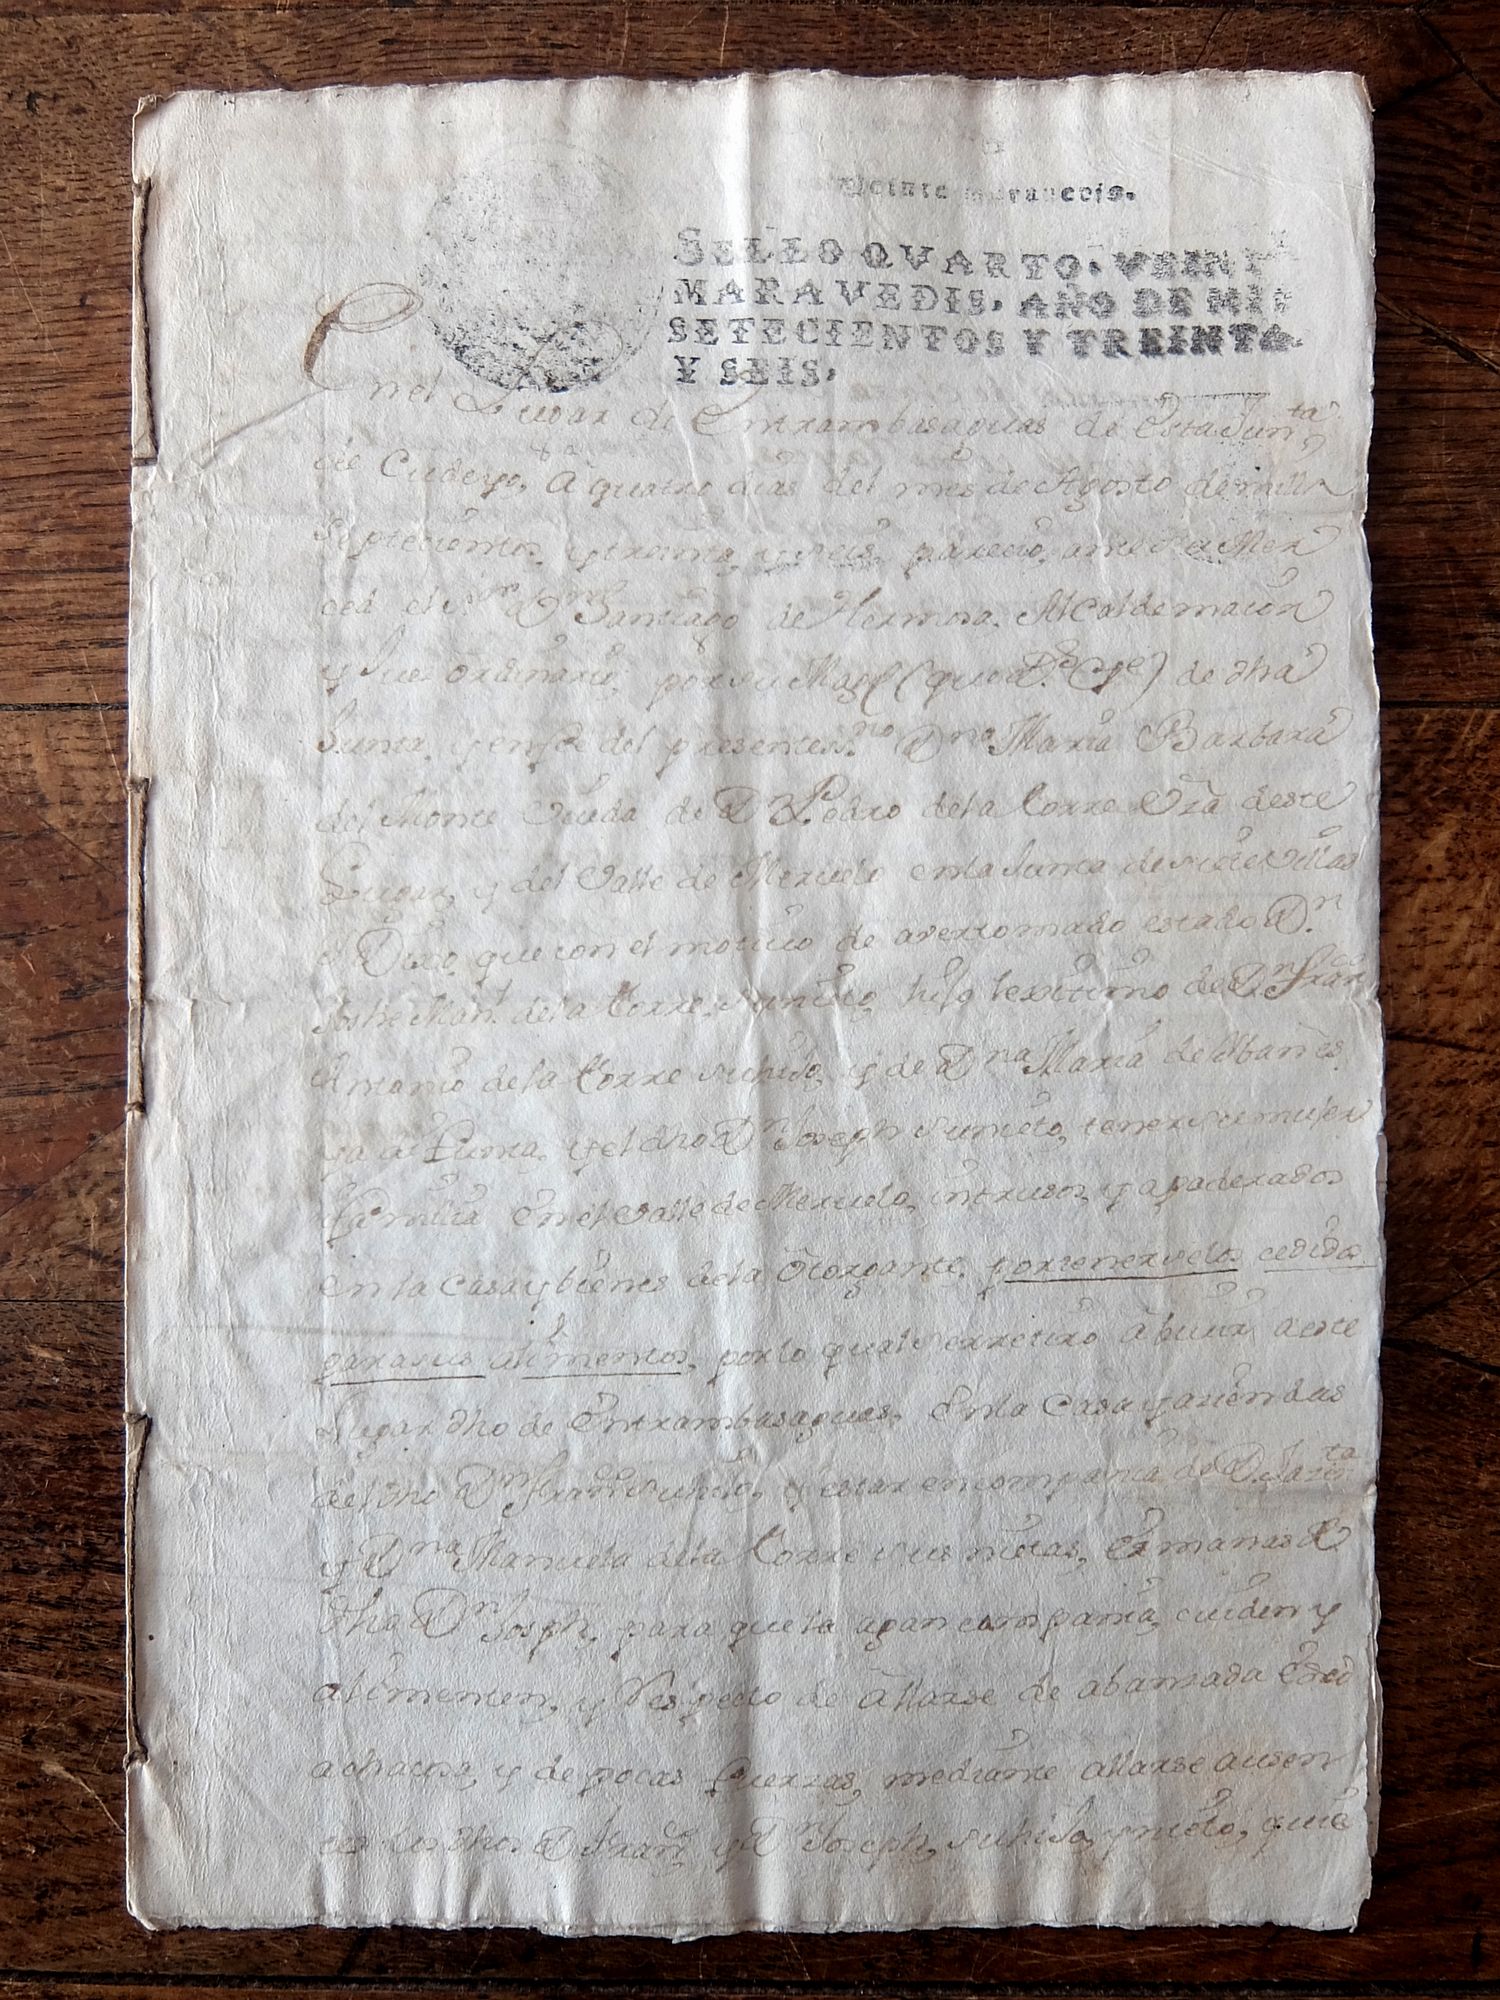 Veinte maravedis.
SELLO QVARTO, VEINT
MARAVEDIS, AÑO DE MIL
SETECIENTOS Y TREINTA
Y SEIS,
En el Lugar de Entrambasaguas de esta Junta
de Cudeyo, a quatro dias del mes de Agosto de mill
septecientos y treinta y seis, parecio ante su Mer
ced el Sor Dn Santiago de Hermosa Alcalde maior
y Jues ordinario por su Magd (que Ds Gue) de dha
Junta y en fee del presente ssno Dna Maria Barbara
del Monte Viuda de Dn Pedro de la Torre Vzª deste
Lugar y del Valle de Meruelo en la Junta de siete Villas
y Dixo que con el motiuo de aver tomado estado Dn
Joshe Manl de la Torre su nieto, hijo lexitimo de Dn Fran
Antonio de la Torre su hijo, y de Dna Maria de
ya difunta, y el dho Dn Joseph su nieto, tener su muger
y familia en el Valle de Meruelo, intrusos y apoderados
en la Casa y bienes de la Otorgante, por tenerselos cedidos
para sus alimentos, por lo qual se retiro a biuir a este
Lugar dho de Entrambasaguas, en la Casa y aziendas
del dho Dn Fran su hijo, y estar en compania de D. Jazta
y Dna Manuela de la Torre sus nietas, ermanas de
dho Dn Joseph, para que la agan compania, cuiden y
alimenten, y Respecto de allarse de abanzada edad
achacosa, y de pocas fuerzas, mediante allarse ausen
tes los dhos Dn Fran y Dn Joseph, su hijo, y nieto, quie